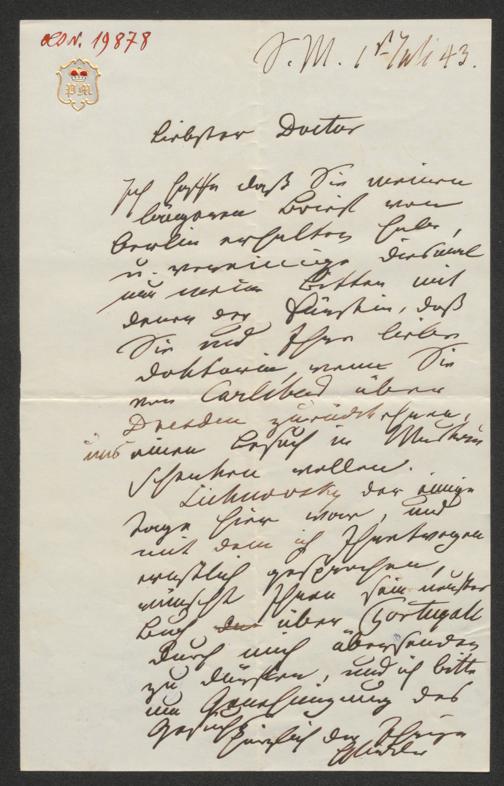 LQN. 19878
PM
S. M. 1st Juli 43.
Liebster Doctor
Ich hoffe daß Sie meinen
längeren Brief von
Berlin erhalten habe,
u. vereinige diesmal
nur meine Bitten mit
denen der Fürstin, daß
Sie und Ihre liebe
Doktorin wenn Sie
von Carlsbad über
Dresden zurückkehren,
uns einen Besuch in Muskau
schenken wollen.
Lichnowsky der einige
Tage hier war, und
mit dem ich Ihretwegen
ernstlich gesprochen,
wünscht Ihnen sein neustes
Buch über Portugall
durch mich übersenden
zu dürfen, und ich bitte
um Genehmigung des
Gesuchs
herzlich der Ihrige